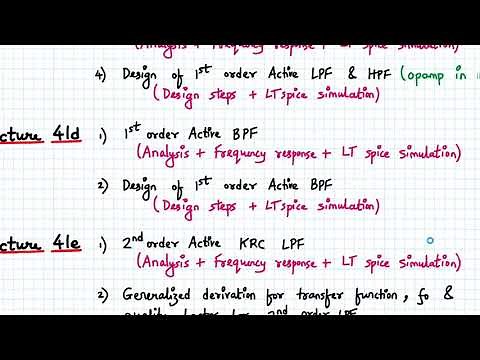 (Analysis + Frequency response + LT spice simulation)
4) Design of 1st order Active LPF & HPF (opamp in
(Design steps + LTspice simulation)
cture 41d 1) 1st order Active BPF
(Analysis + Frequency response + LT spice simulation)
2) Design of 1st order Active BPF
(Design steps + LTspice simulation)
cture 41e 1) 2nd order Active KRC LPF
(Analysis + Frequency response + LT spice simulation)
2) Generalized derivation for transfer function, fo &
quality factor for 2nd order LPF